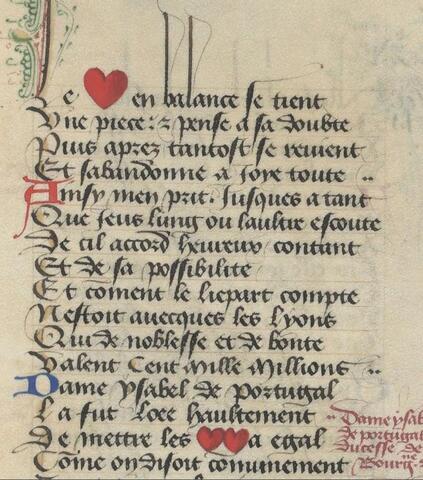 Le ♥ en balance se tient
Une piece: & pense a sa doubte
Puis aprez tantost se revient
Et sabandonne a joye toute
Ainsy men prit. Jusques a tant
Que jeus lung ou laultre escoute
De cil accord heureux contant
Et de sa possibilite
Et coment le liepart compte
Nestoit avecques les lyons
Qui de noblesse et de bonte
Valent Cent Mille Millions
Dame ysabel de portugal
La fut loee haultement
De mettre les ♥♥ a egal
Come on disoit comunement
Dame ysab
de portugal
Ducesse de
Bourg.